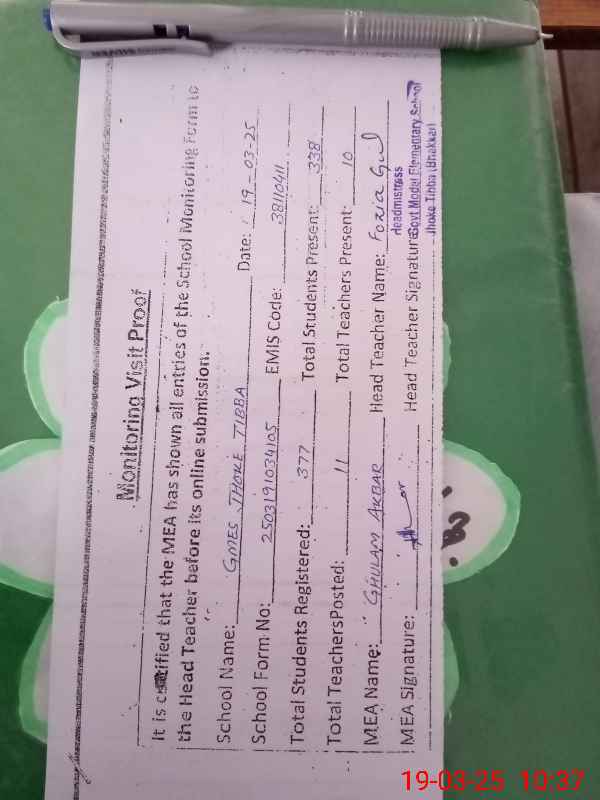 Monitoring Visit Proof
It is certified that the MEA has shown all entries of the School Monitoring Form to
the Head Teacher before its online submission.
School Name: GMES JHOKE TIBBA Date: 19-03-25
School Form No: 2503191034105 EMIS Code: 38110411
Total Students Registered: 377 Total Students Present: 338
Total TeachersPosted: 11 Total Teachers Present: 10
MEA Name: GHULAM AKBAR Head Teacher Name: Fozia Gul
MEA Signature: Head Teacher Signature
Headmistress
Govt Model Elementary School
Jhoke Tibba (Bhakkar)
19-03-25 10:37